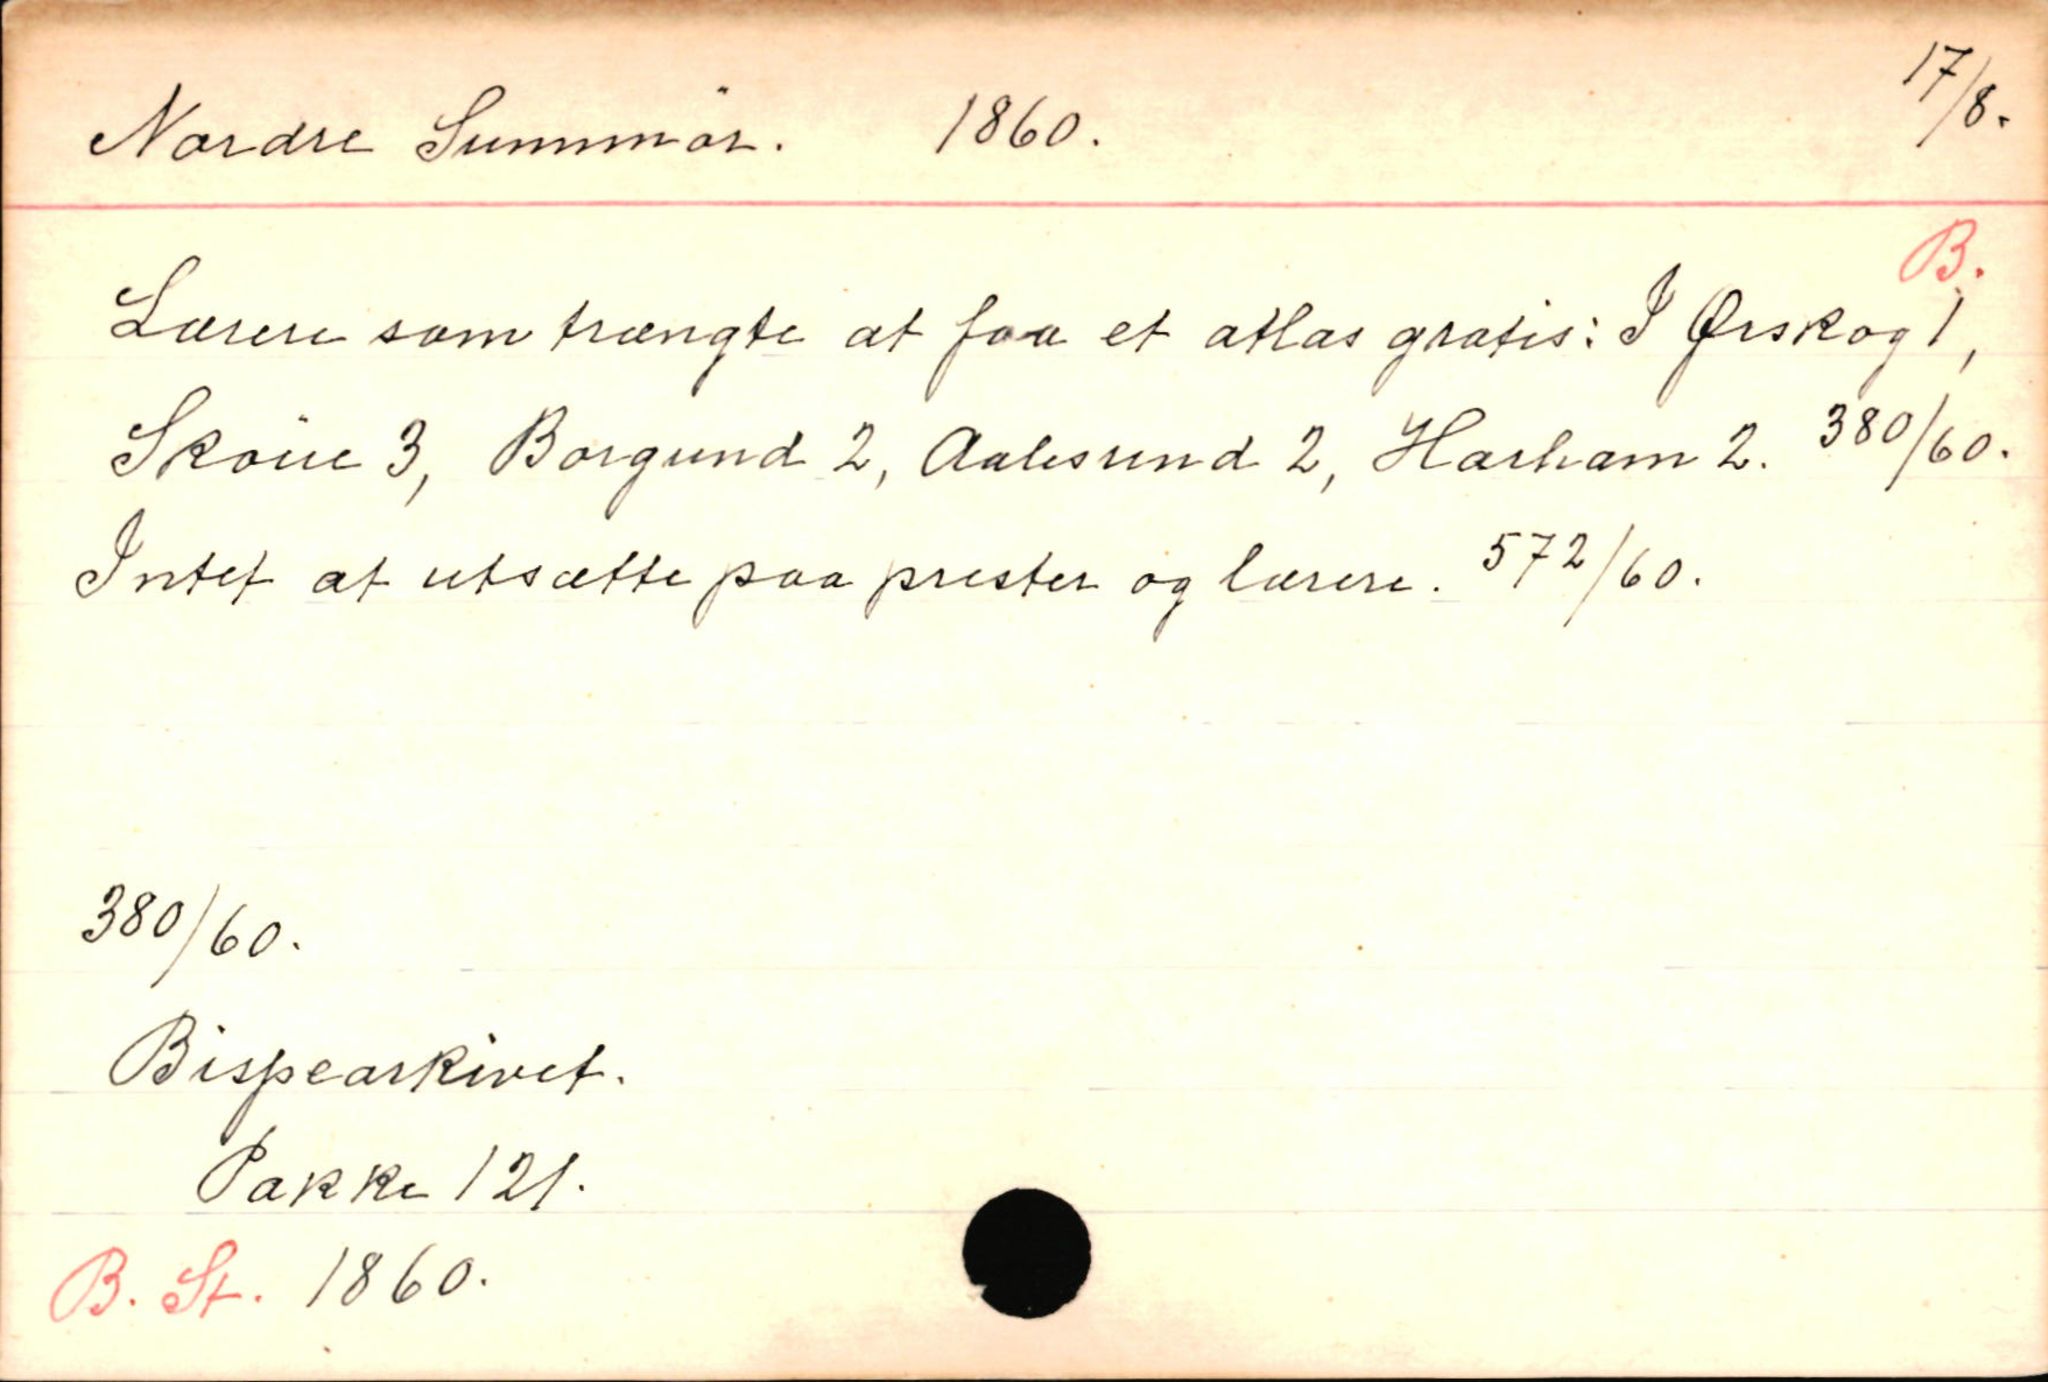 Nordre Sunnmör. 1860. 17/8.
B.
Lærere som trængte at faa et atlas gratis: I Ørskog 1,
Sköue 3, Borgund 2, Aalesund 2, Harham 2. 380/60.
Intet at utsætte paa prester og lærere. 572/60.
380/60.
Bispearkivet.
Pakke 121.
B. St. 1860.